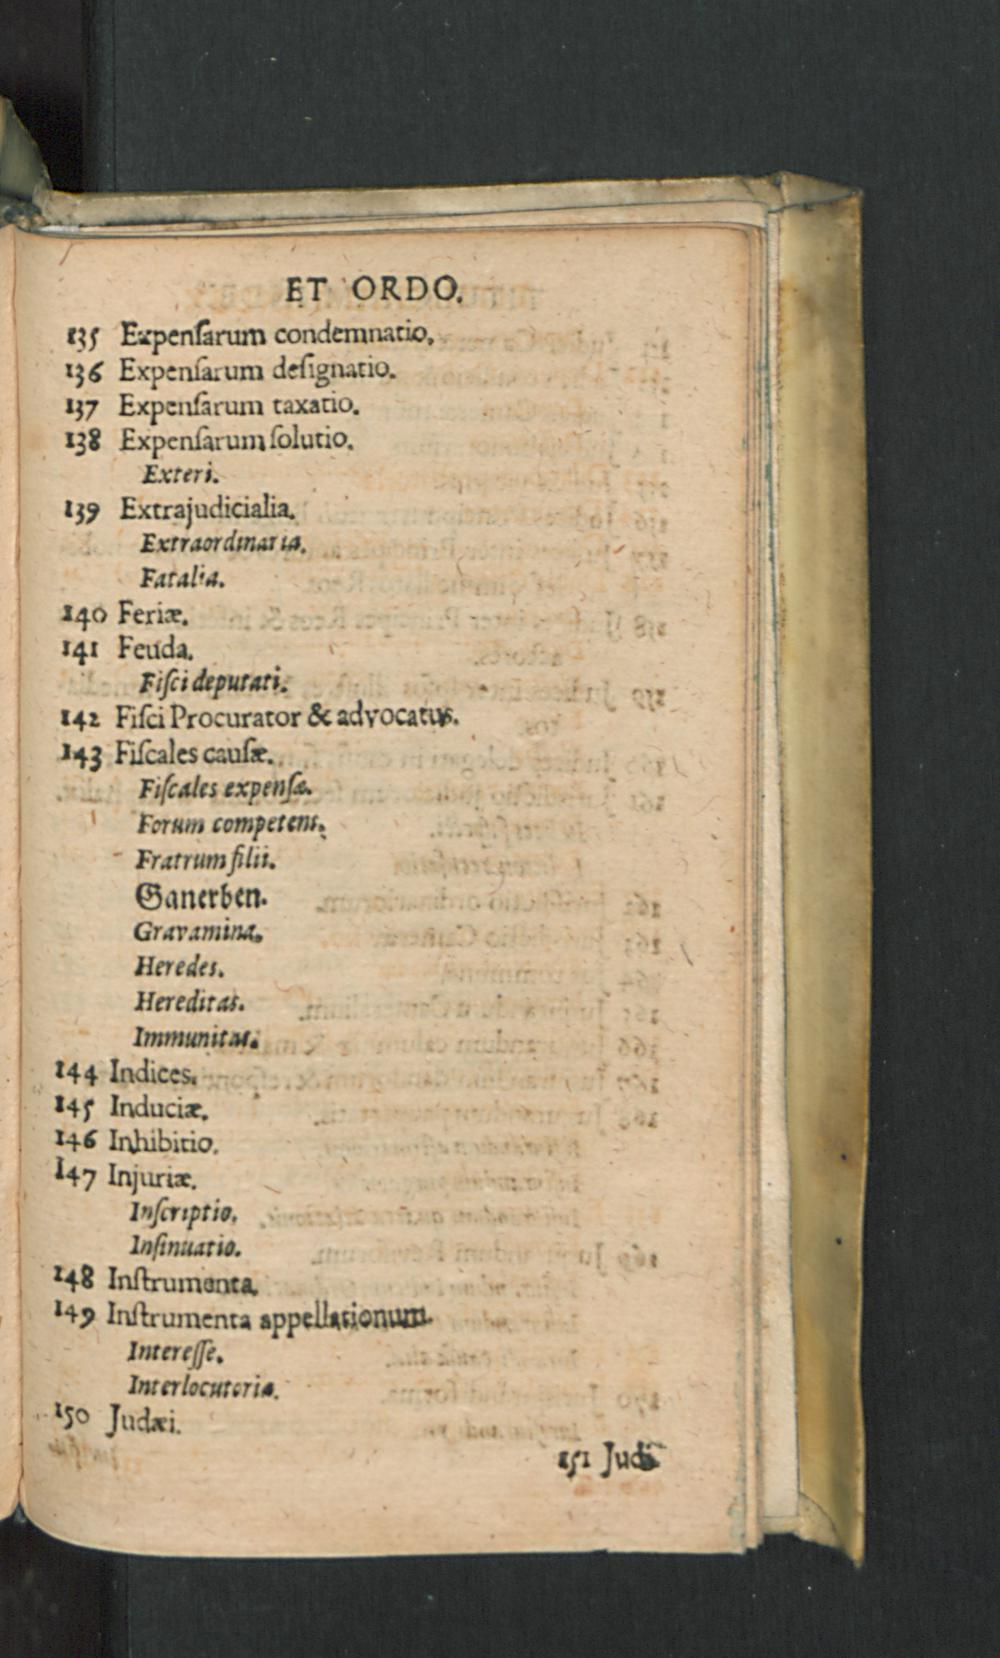 ET ORDO.
135 Expenſarum condemnatio.
136 Expenſarum deſignatio.
137 Expenſarum taxatio.
138 Expenſarum ſolutio.
Exteri.
139 Extrajudicialia.
Extraordinaria.
Fatalia.
140 Feriæ.
141 Feuda.
Fiſci deputati.
142 Fiſci Procurator & advocatus.
143 Fiſcales cauſæ.
Fiſcales expenſæ.
Forum competens.
Fratrum filii.
Ganerben.
Gravamina.
Heredes.
Hereditas.
Immunitas.
144 Indices.
145 Induciæ.
146 Inhibitio.
147 Injuriæ.
Inſcriptio.
Inſinuatio.
148 Inſtrumenta.
149 Inſtrumenta appellationum.
Intereſſe.
Interlocutoria.
150 Judæi.
151 Judi